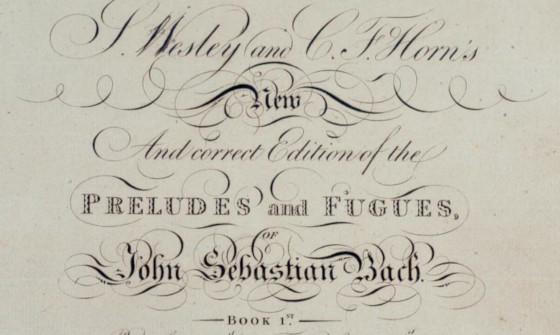 S. Wesley and C. F. Horn's
New
And correct Edition of the
PRELUDES and FUGUES,
OF
John Sebastian Bach.
BOOK 1ST.